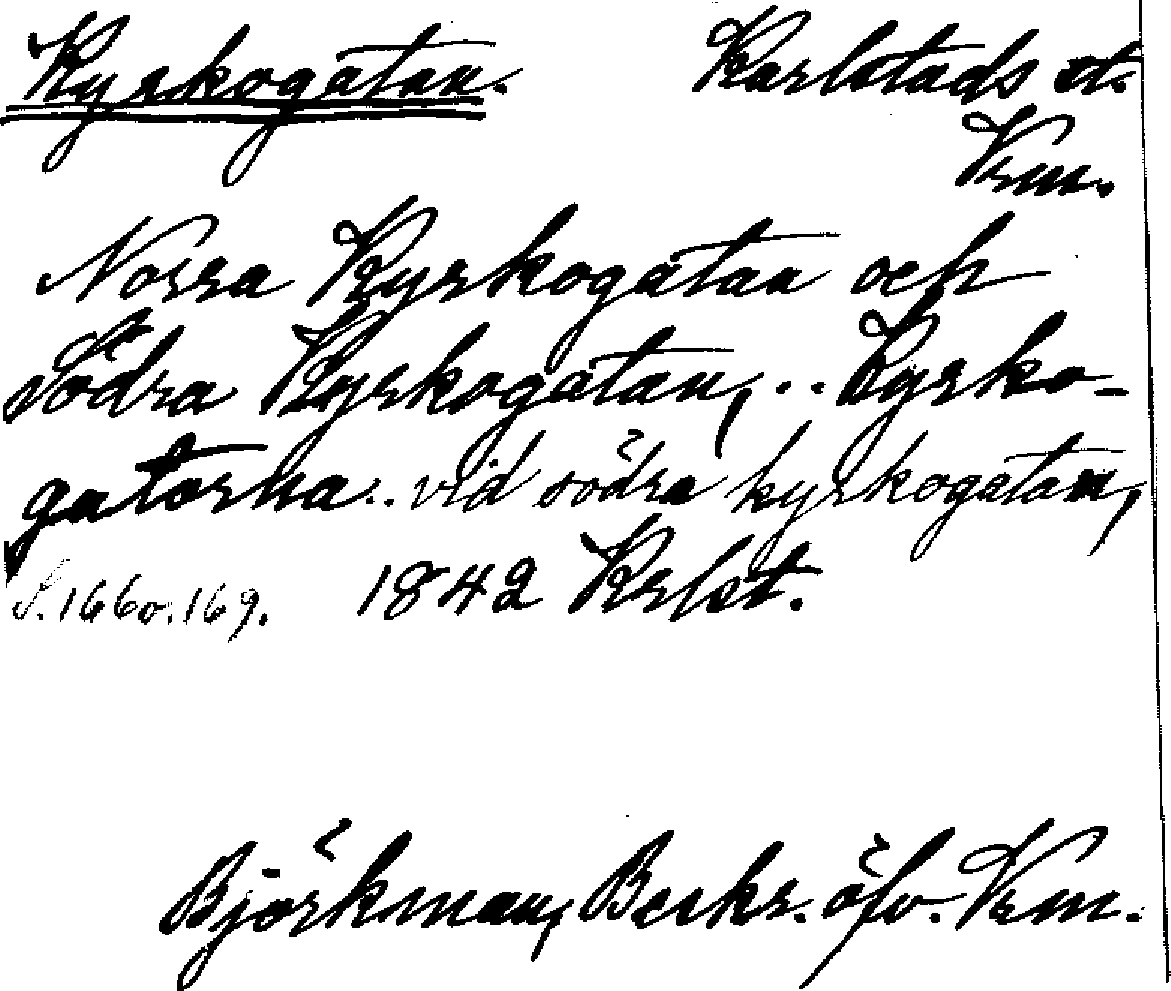 Kyrkogatan. Karlstads st.
Vrm.
Norra Kyrkogatan och
Södra Kyrkogatan, .. Kyrko-
gatorna .. vid södra kyrkogatan,
S. 166 o. 169. 1842 Krlst.
Björkman, Beskr. öfv. Vrm.